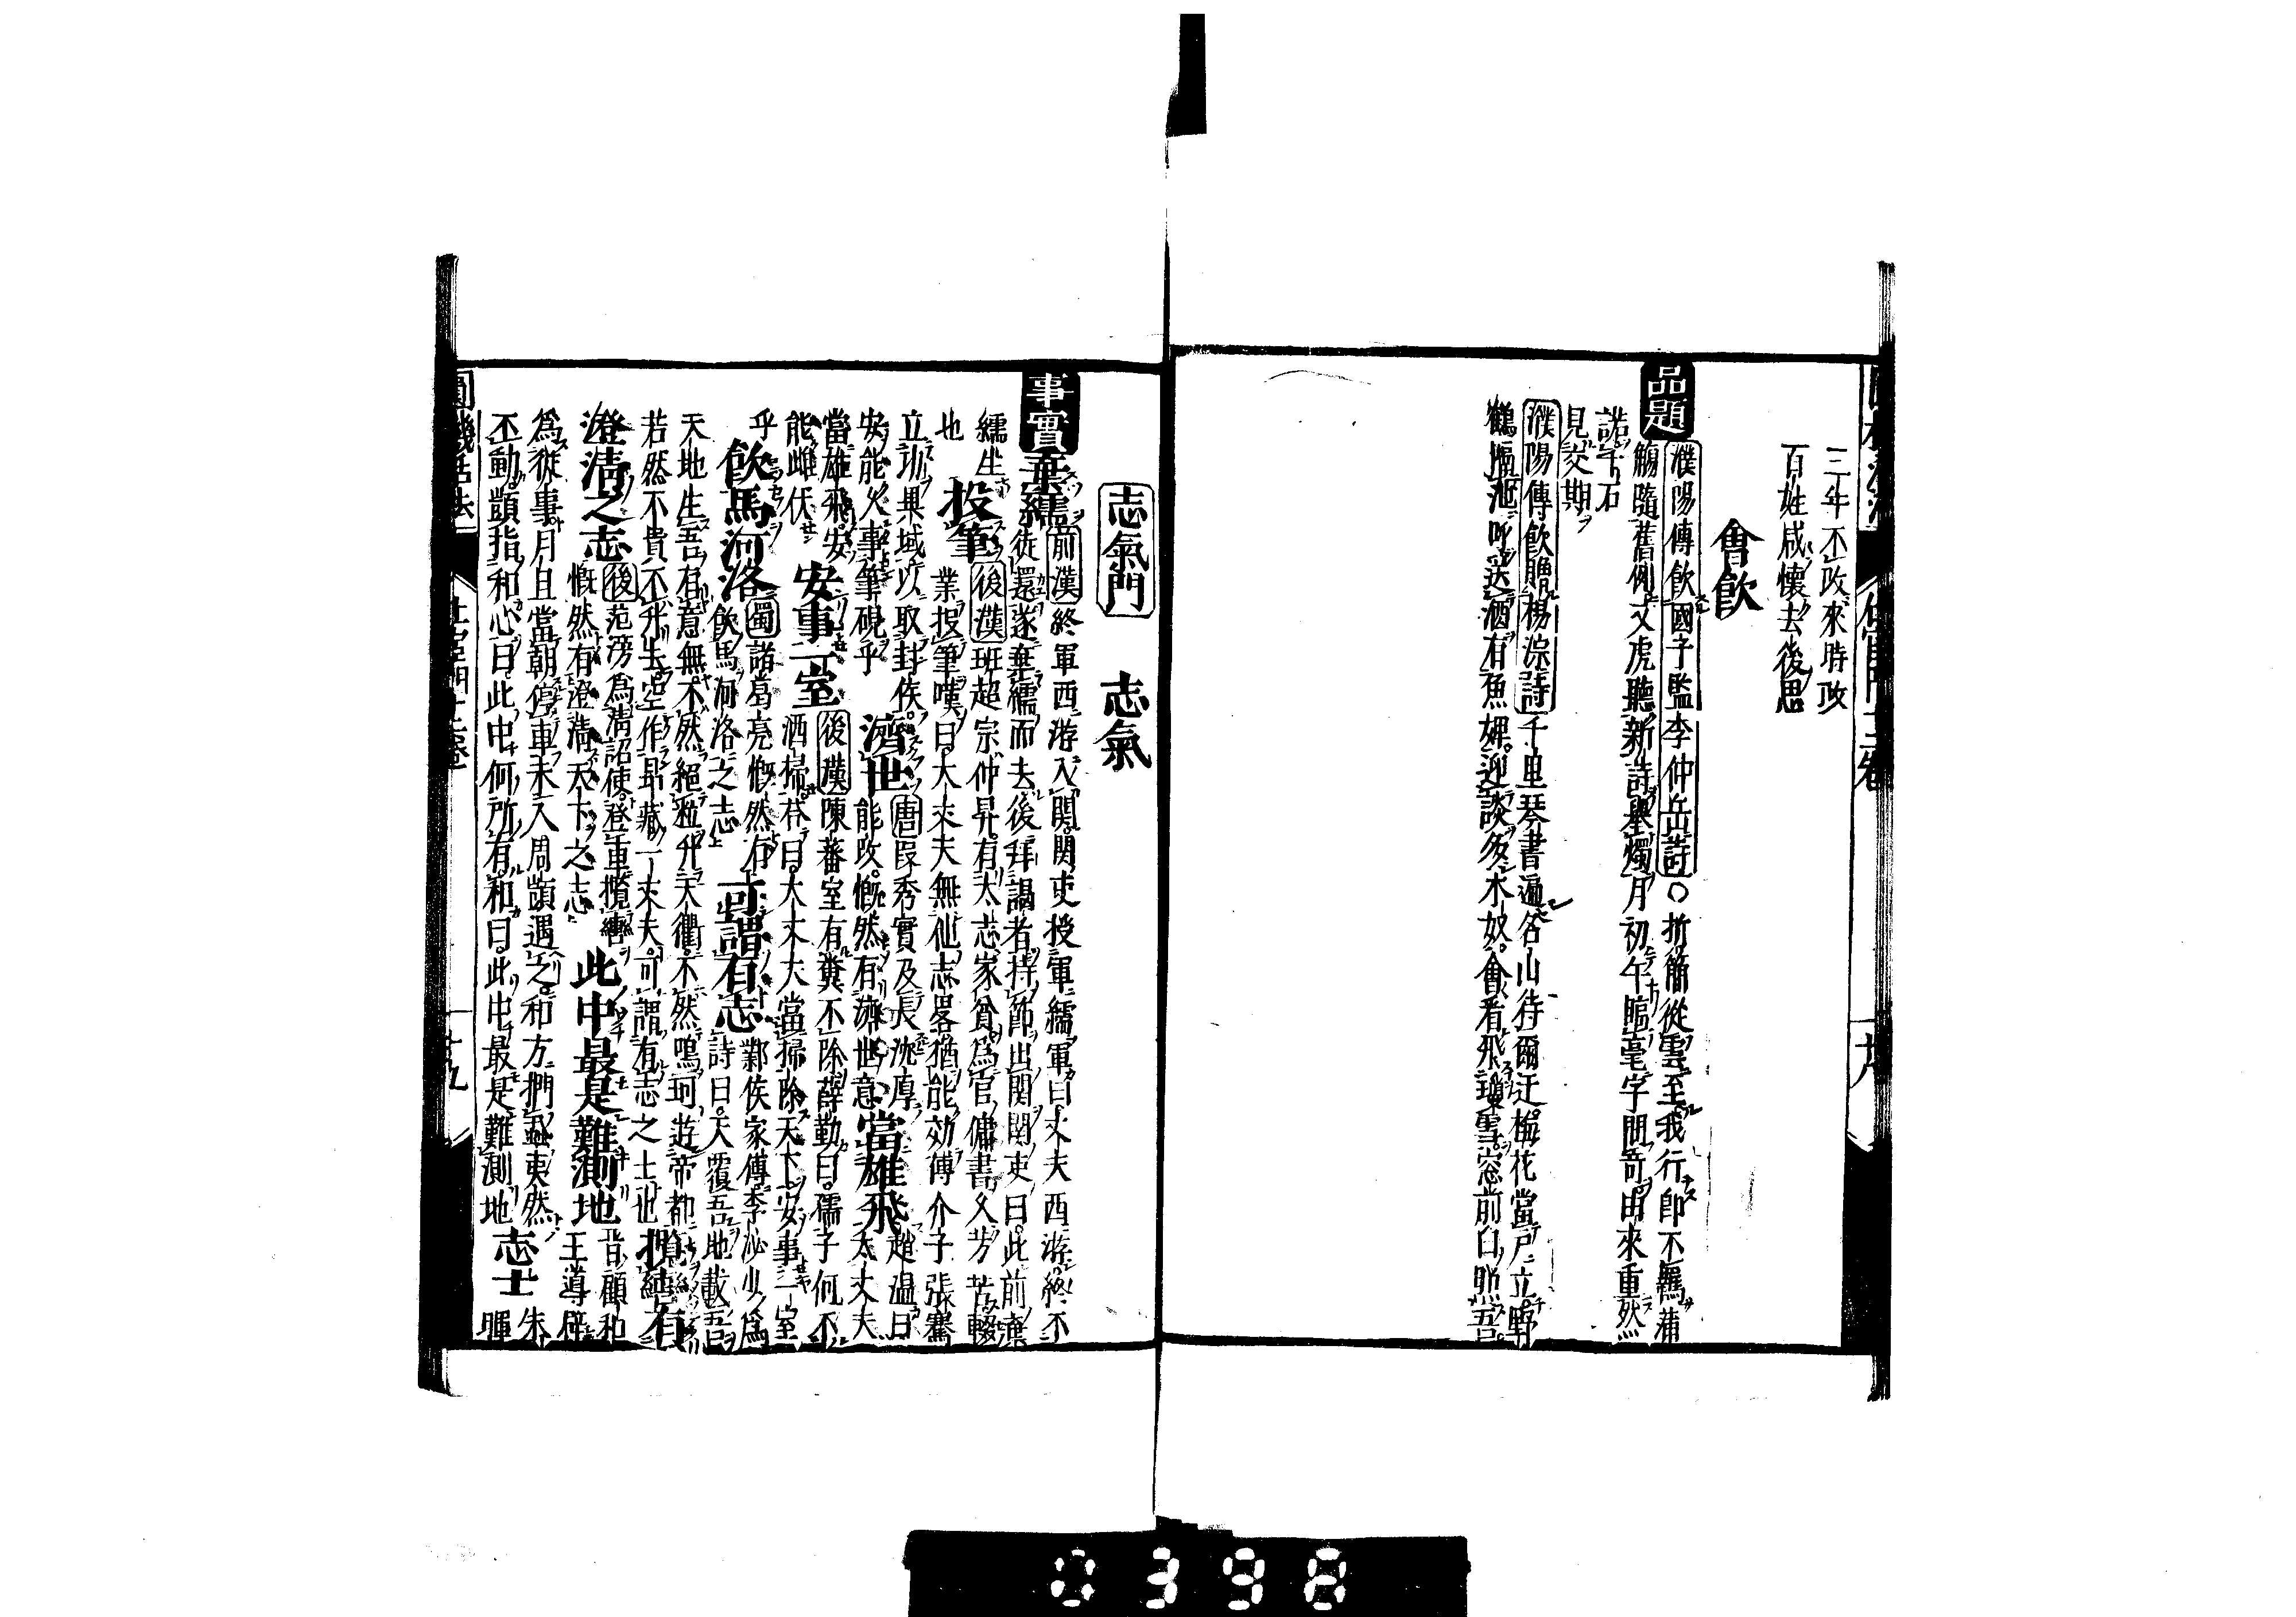 三年不改來時政
百姓咸懷去後思
會飲
品題 濮陽傳飲國子監李仲岳詩○折簡從雲至我行卽不羈蒲
觴隨舊例文虎聽新詩擧燭月初午臨毫字問奇由來重然
諾午石
見淡期
濮陽傳飲贈楊淙詩千里琴書遍名山待爾迂梅花當戸立野
鶴摳池呼送酒有魚婢迎談多木奴會看飛瓊雪窓前白照吾
志氣門 志氣
事實 棄繻 前漢終軍西游入關關吏授軍繻軍曰丈夫西游終不
徒還遂棄繻而去後拜謁者持節出關關吏曰此前棄
繻生 後漢班超宗仲昇有大志家貧爲官傭書久勞苦輟
也 投筆 業投筆嘆曰大丈夫無他志畧猶能効傅介子張騫
立功異域以取封侯 濟世 唐段秀實及長沈厚 當雄飛 趙温曰
安能久事筆硯乎 能改慨然有濟世意 大丈夫
當雄飛安 安事一室 後漢陳蕃室有糞不除薛勤曰孺子何不
能雌伏 洒掃荅曰大丈夫當掃除天下安事一室
乎 飲馬河洛 蜀諸葛亮慨然有 可謂有志 鄴侯家傳李泌少爲
飲馬河洛之志 詩曰天覆吾地載吾
天地生吾有意無不然絕粒升天衢不然鳴珂遊帝都
若然不貴不升去空作昻藏一丈夫可謂有志之士也 攬轡有
澄清之志 後范滂爲淸詔使登車攬轡 此中最是難測地 晋顧和
慨然有澄淸天下之志 王導辟
爲從事月旦當朝停車未入周顗遇之和方捫蝨夷然
不動顗指和心曰此中何所有和曰此中最是難測地 志士 朱
暉
圓機活法